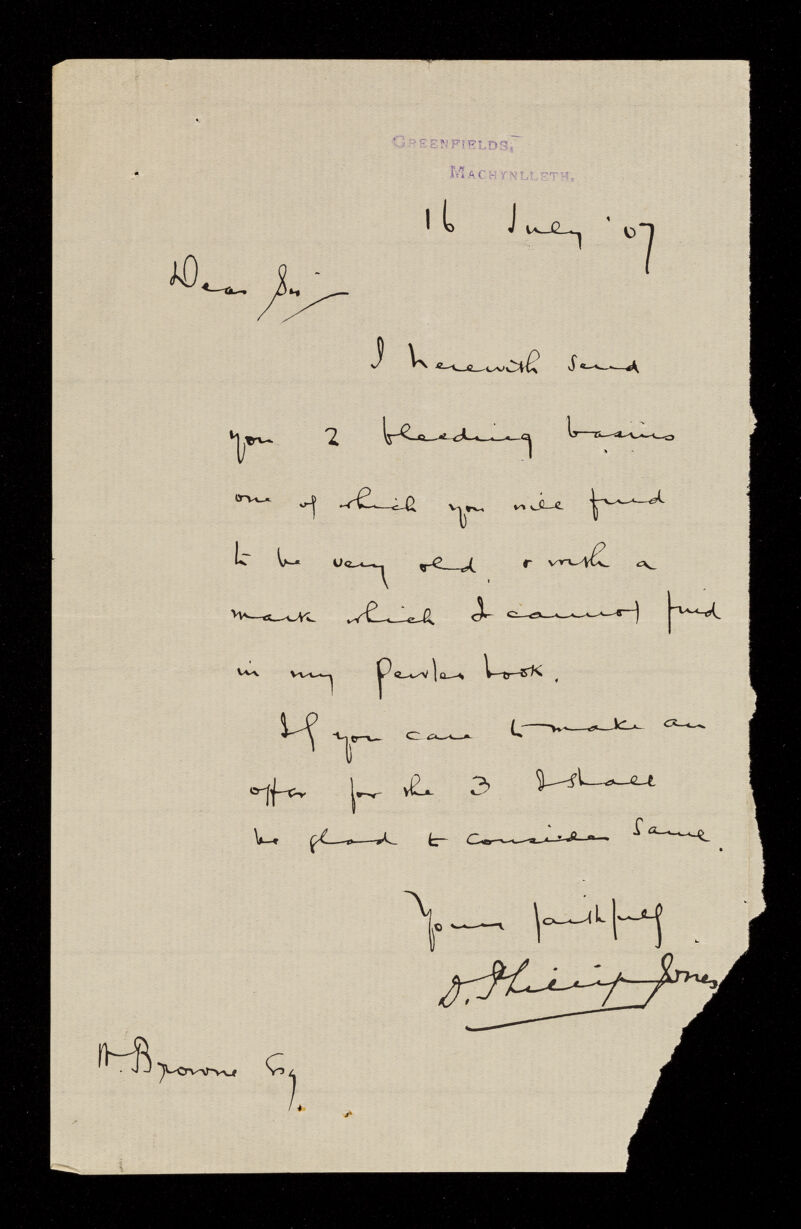 GREENFIELDS,
MACHYNLLETH.
16 July '07
Dear Sir
I herewith send
you 2 bleeding basins
one of which you will find
to be very old, & with a
mark which I cannot find
in my Pewter book.
If you care to make an
offer for the 3 I shall
be glad to consider same.
Yours faithfully
D. Phillip Jones
H. Browne Esq